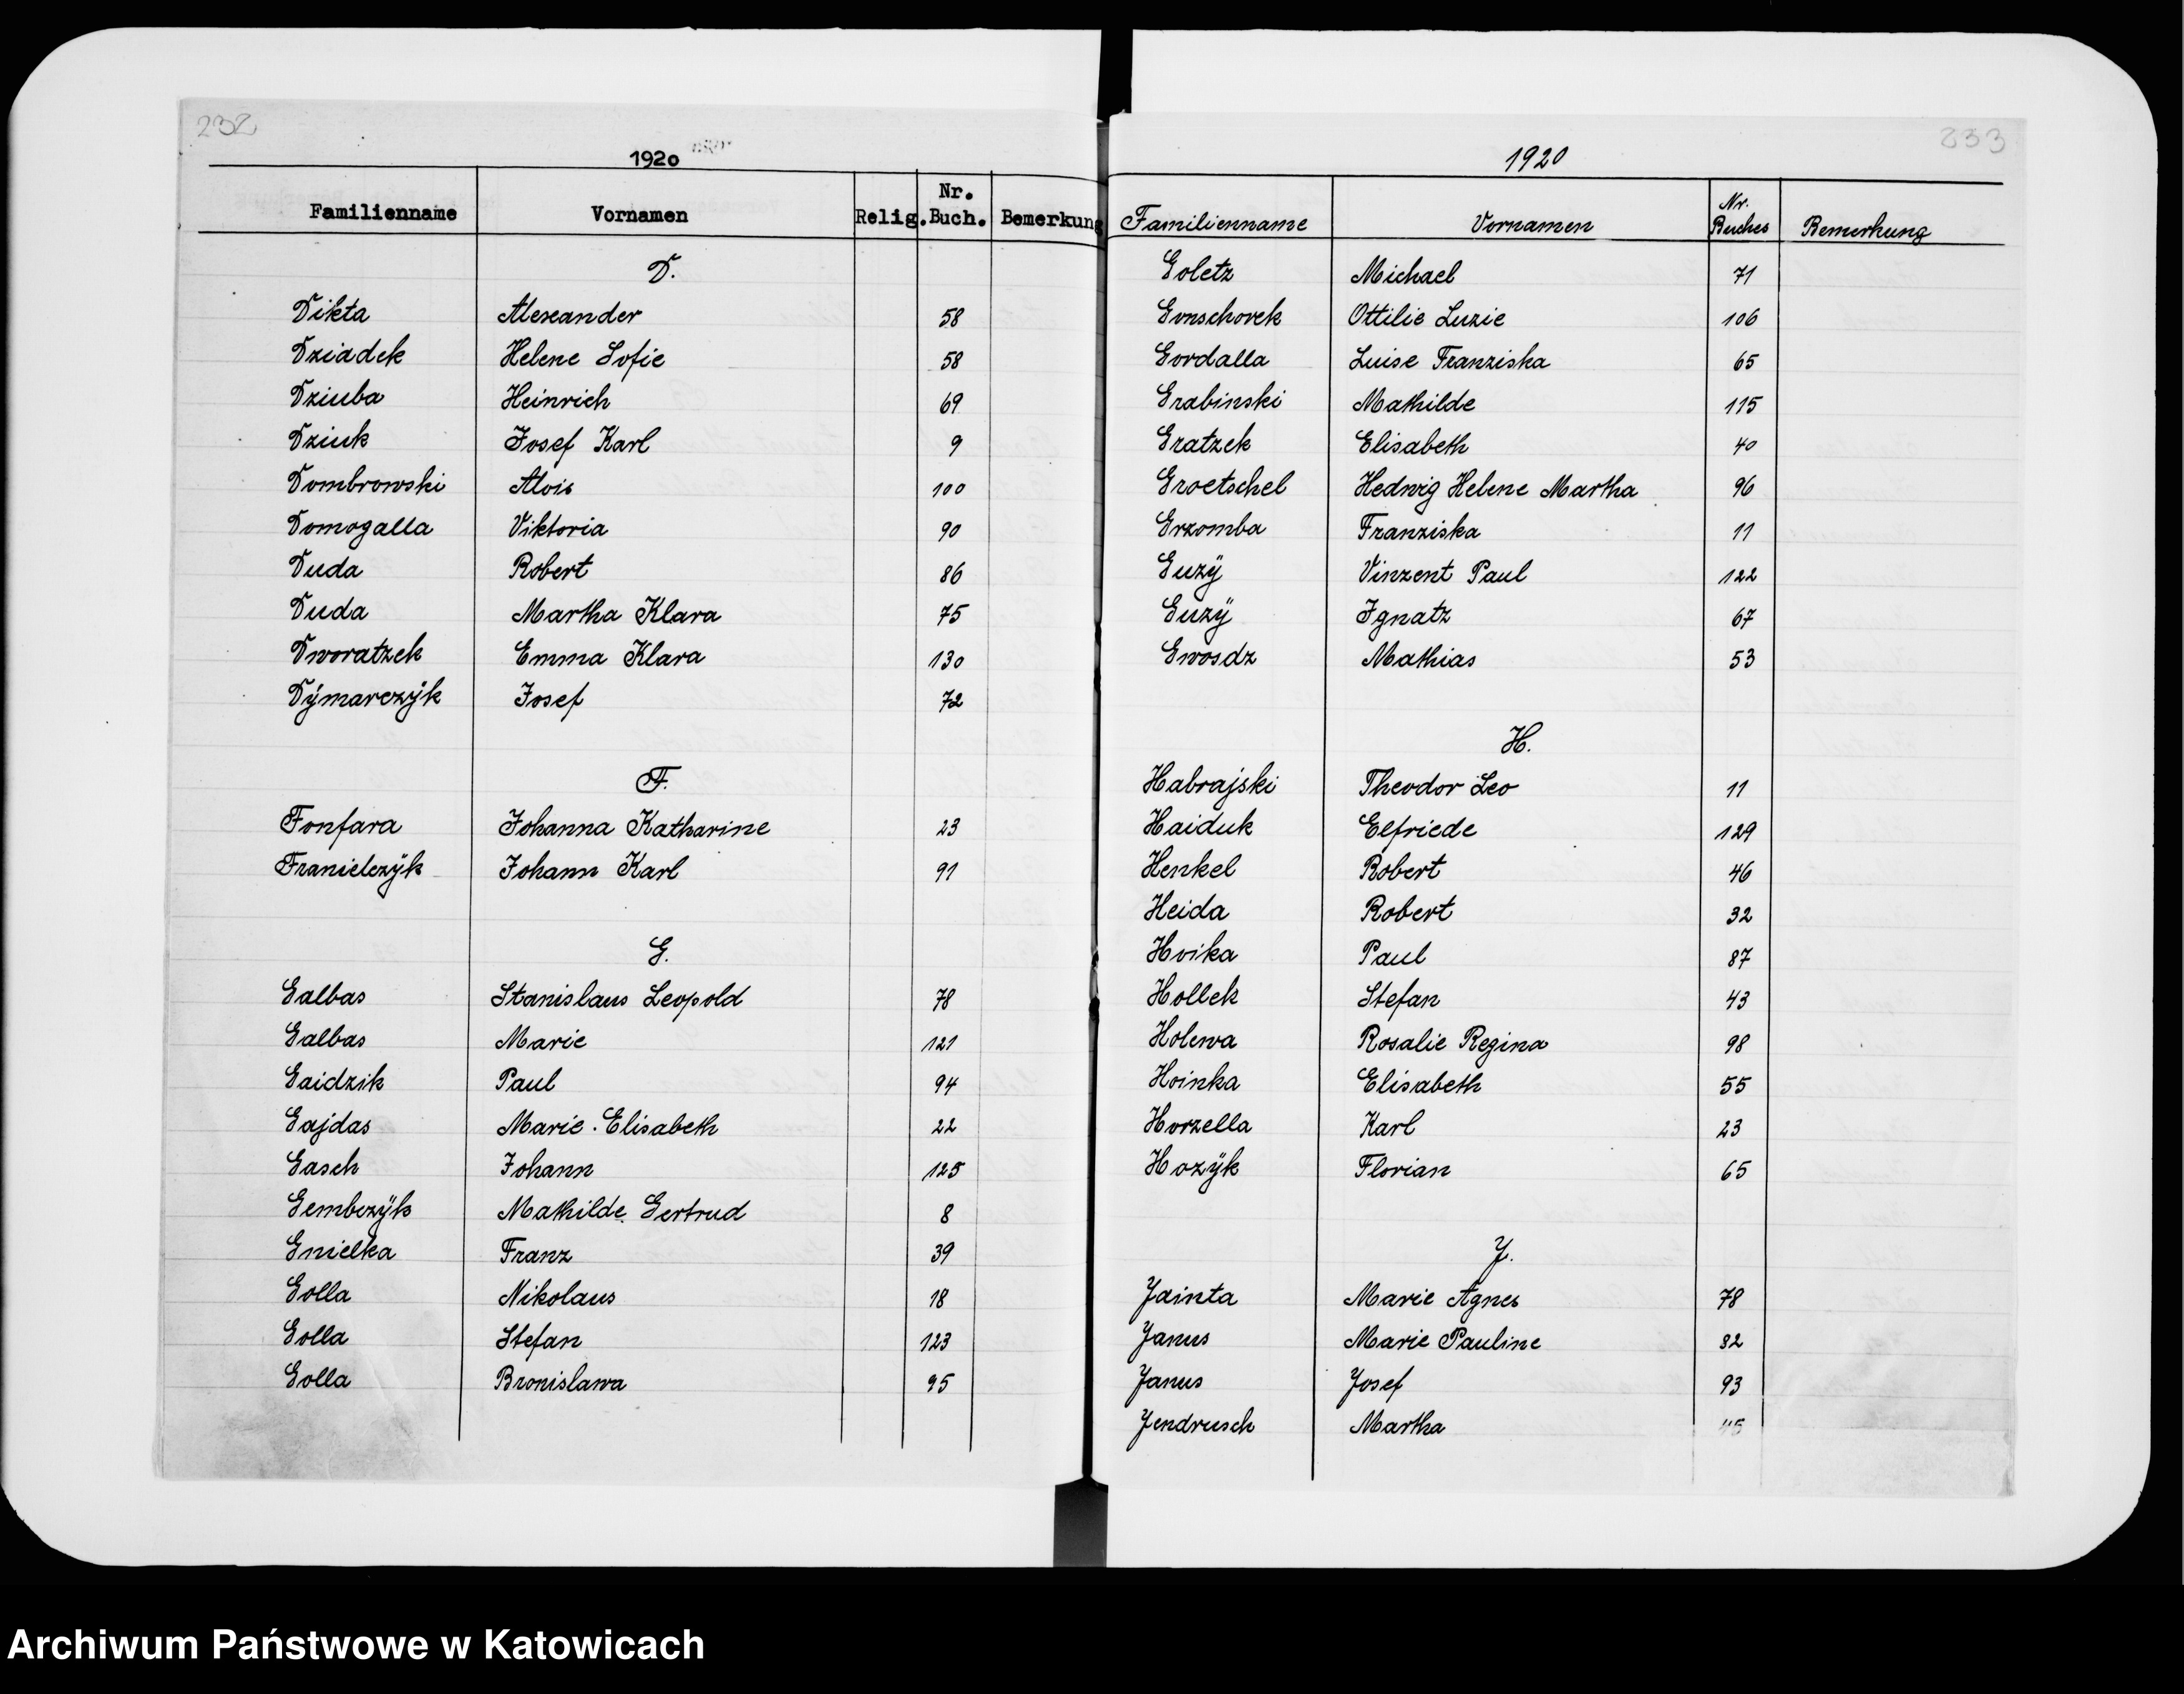 232
1920
Familienname Vornamen Relig. Nr. Buch. Bemerkung
D.
Dikta Alexander 58
Dziadek Helene Sofie 58
Dziuba Heinrich 69
Dziuk Josef Karl 9
Dombrowski Alois 100
Domogalla Viktoria 90
Duda Robert 86
Duda Martha Klara 75
Dworatzek Emma Klara 130
Dÿmarczÿk Josef 72
F.
Fonfara Johanna Katharine 23
Franielczÿk Johann Karl 91
G.
Galbas Stanislaus Leopold 78
Galbas Marie 121
Gaidzik Paul 94
Gajdas Marie Elisabeth 22
Gasch Johann 125
Gembczÿk Mathilde Gertrud 8
Gnielka Franz 39
Golla Nikolaus 18
Golla Stefan 123
Golla Bronislawa 95
233
1920
Familienname Vornamen Nr. Buches Bemerkung
Goletz Michael 71
Gonschorek Ottilie Luzie 106
Gordalla Luise Franziska 65
Grabinski Mathilde 115
Gratzek Elisabeth 40
Groetschel Hedwig Helene Martha 96
Grzomba Franziska 11
Guzÿ Vinzent Paul 122
Guzÿ Ignatz 67
Gwosdz Mathias 53
H.
Habrajski Theodor Leo 11
Haiduk Elfriede 129
Henkel Robert 46
Heida Robert 32
Hoika Paul 87
Hollek Stefan 43
Holewa Rosalie Regina 98
Hoinka Elisabeth 55
Horzella Karl 23
Hozÿk Florian 65
J.
Jainta Marie Agnes 78
Janus Marie Pauline 82
Janus Josef 93
Jendrusch Martha 45
Archiwum Państwowe w Katowicach